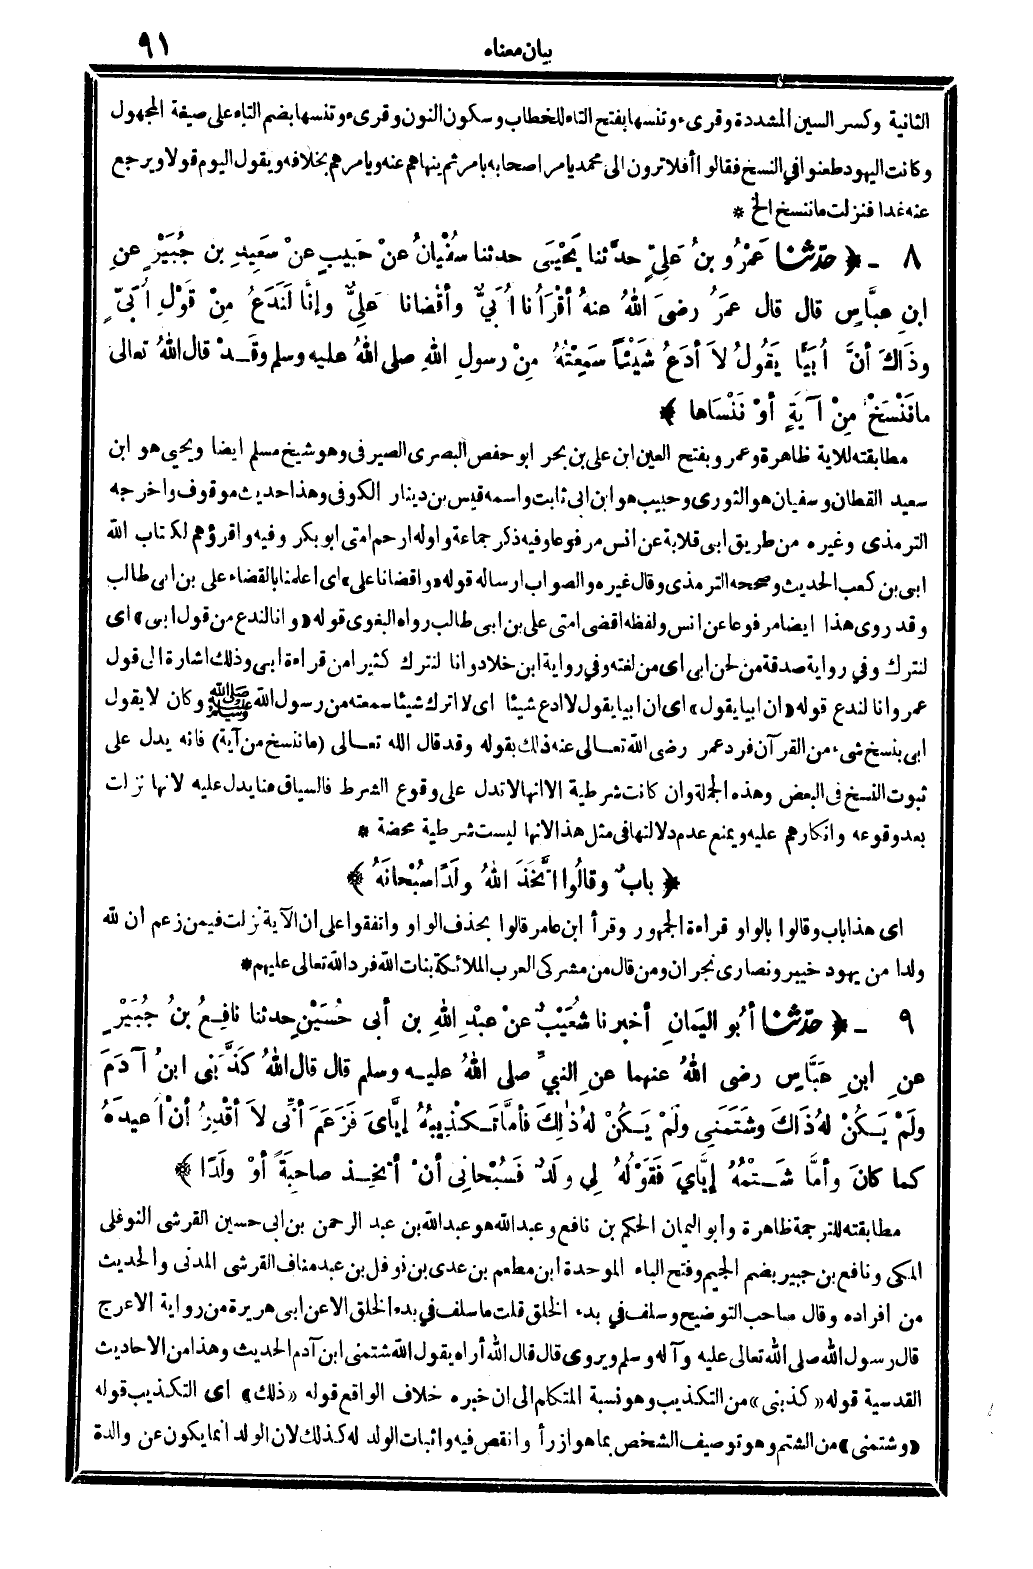 بيان معناه
٩١
الثانية وكسر السين المشددة وقرىء وتنسها بفتح التاء للخطاب وسكون النون وقرىء وتنسها بضم التاء على صيغة المجهول
وكانت اليهود طعنوا في النسخ فقالوا أفلا ترون الى محمد يامر اصحابه بامر ثم ينهاهم عنه ويامرهم بخلافه ويقول اليوم قولا ويرجع
عنه غدا فنزلت ما ننسخ الخ *
٨ ـ ﴿ حدّثنا عَمْرُو بنُ عَلِيٍّ حدَّثنا يَحْيَى حدثنا سُفْيانُ عنْ حَبيبٍ عنْ سَعِيدِ بن جُبَيْرٍ عنِ
ابنِ عبَّاسٍ قال قال عمَرُ رضى اللهُ عنهُ أقْرَأُنا أُبَيٌّ وأقْضانا عَلِيٌّ وإنَّا لَنَدَعُ مِنْ قَوْلِ أُبَيٍّ
وذَاكَ أنَّ أُبَيًّا يَقُولُ لاَ أدَعُ شَيْئاً سَمِعْتُهُ مِنْ رسولِ اللهِ صلى اللهُ عليه وسلم وقَدْ قال اللهُ تعالى
ما نَنْسَخْ مِنْ آيَةٍ أوْ نَنْسَاها ﴾
مطابقته للاية ظاهرة وعمرو بفتح العين ابن على بن بحر ابو حفص البصرى الصيرفى وهو شيخ مسلم ايضا ويحيى هو ابن
سعيد القطان وسفيان هو الثورى وحبيب هو ابن ابى ثابت واسمه قيس بن دينار الكوفى وهذا حديث موقوف واخرجه
الترمذى وغيره من طريق ابى قلابة عن انس مرفوعا وفيه ذكر جماعة واوله ارحم امتى ابو بكر وفيه واقرؤهم لكتاب الله
ابى بن كعب الحديث وصححه الترمذى وقال غيره والصواب ارساله قوله «واقضانا على» اى اعلمنا بالقضاء على بن ابى طالب
وقد روى هذا ايضا مرفوعا عن انس ولفظه اقضى امتى على بن ابى طالب رواه البغوى قوله «وانا لندع من قول ابى» اى
لنترك وفي رواية صدقة من لحن ابى اى من لغته وفي رواية ابن خلاد وانا لنترك كثيرا من قراءة ابى وذلك اشارة الى قول
عمر وانا لندع قوله «ان ابيا يقول» اى ان ابيا يقول لا ادع شيئا اى لا اترك شيئا سمعته من رسول الله ﷺ وكان لا يقول
ابى بنسخ شىء من القرآن فرد عمر رضى الله تعالى عنه ذلك بقوله وقد قال الله تعالى (ما ننسخ من آية) فانه يدل على
ثبوت النسخ فى البعض وهذه الجملة وان كانت شرطية الا انها لا تدل على وقوع الشرط فالسياق هنا يدل عليه لانها نزلت
بعد وقوعه وانكارهم عليه ويمنع عدم دلالتها فى مثل هذا لانها ليست شرطية محضة *
﴿ بابٌ وقالُوا اتَّخَذَ اللهُ ولَدًا سُبْحانَهُ ﴾
اى هذا باب وقالوا بالواو قراءة الجمهور وقرأ ابن عامر قالوا بحذف الواو واتفقوا على ان الآية نزلت فيمن زعم ان لله
ولدا من يهود خيبر ونصارى نجران ومن قال من مشركى العرب الملائكة بنات الله فرد الله تعالى عليهم *
٩ ـ ﴿ حدّثنا أبُو اليَمانِ أخبرنا شُعَيْبٌ عنْ عبْدِ اللهِ بنِ أبى حُسَيْنٍ حدثنا نافِعُ بنُ جُبَيْرٍ
عنِ ابنِ عَبَّاسٍ رضى اللهُ عنهما عنِ النبيِّ صلى اللهُ عليه وسلم قال قال اللهُ كَذَّبَنى ابنُ آدَمَ
ولَمْ يَكُنْ لهُ ذَاكَ وشَتَمَنى ولَمْ يَكُنْ لهُ ذٰلِكَ فأمَّا تَكْذِيبُهُ إيَّاىَ فَزَعَمَ أنِّى لاَ أقْدِرُ أنْ أُعيدَهُ
كما كانَ وأمَّا شَتْمُهُ إيَّايَ فَقَوْلُهُ لِي ولَدٌ فَسُبْحانِى أنْ أتخِذَ صاحِبَةً أوْ ولَدًا ﴾
مطابقته للترجمة ظاهرة وأبو اليمان الحكم بن نافع وعبد الله هو عبد الله بن عبد الرحمن بن ابى حسين القرشى النوفلى
المكى ونافع بن جبير بضم الجيم وفتح الباء الموحدة ابن مطعم بن عدى بن نوفل بن عبد مناف القرشى المدنى والحديث
من افراده وقال صاحب التوضيح وسلف في بدء الخلق قلت ما سلف في بدء الخلق الا عن ابى هريرة من رواية الاعرج
قال رسول الله صلى الله تعالى عليه وآله وسلم ويروى قال قال الله أراه يقول الله شتمنى ابن آدم الحديث وهذا من الاحاديث
القدسية قوله «كذبنى» من التكذيب وهو نسبة المتكلم الى ان خبره خلاف الواقع قوله «ذلك» اى التكذيب قوله
«وشتمنى» من الشتم وهو توصيف الشخص بما هو ازرأ وانقص فيه واثبات الولد له كذلك لان الولد انما يكون عن والدة